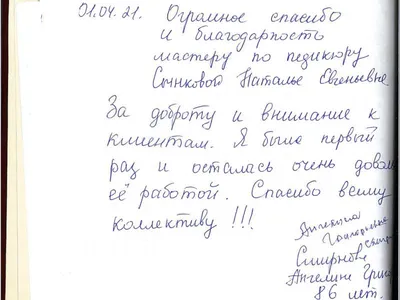 01.04.21. Огромное спасибо
и благодарность
мастеру по педикюру
Сычиковой Наталье Евгеньевне
За доброту и внимание к
клиентам. Я была первый
раз и осталась очень довол
её работой. Спасибо всему
коллективу !!!
Ангелина
Смирнов
Ангелина Григ
86 лет.